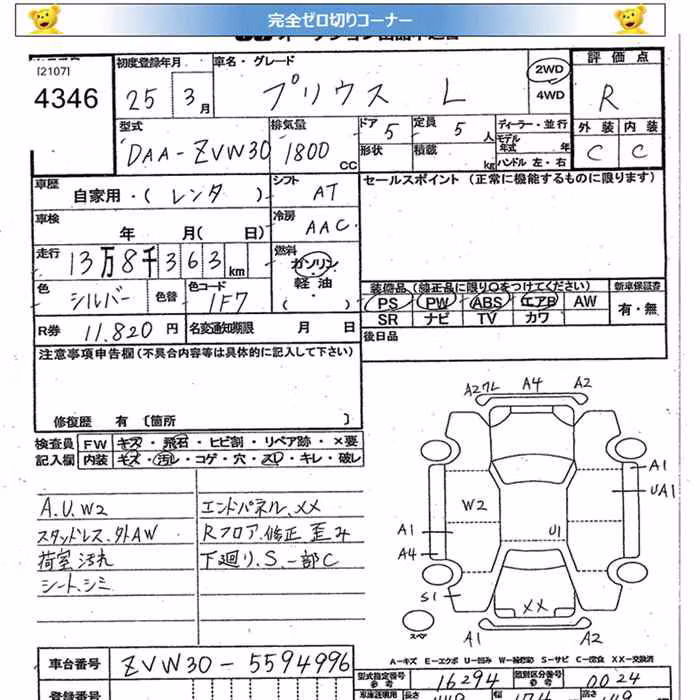 完全ゼロ切りコーナー
[2107]
4346
初度登録年月
25 3月
車名・グレード
プリウス L
2WD
4WD
評価点
R
型式
DAA-ZVW30
排気量
1800 CC
ドア 5
定員 5人
形状
積載 kg
ディーラー・並行
モデル年式 年
ハンドル 左・右
外装 内装
C C
車歴
自家用・(レンタ)
シフト
AT
セールスポイント (正常に機能するものに限ります)
車検
年 月(日)
冷房
AAC
走行
13万8千363km
燃料
ガソリン
軽油
( )
色
シルバー
色替
色コード
1F7
装備品(純正品に限り○をつけてください)
PS PW ABS エアB AW
SR ナビ TV カワ
新車保証書
有・無
R券 11.820円
名変通知期限 月 日
後日品
注意事項申告欄(不具合内容等は具体的に記入して下さい)
修復歴 有 〔箇所 〕
検査員記入欄
FW キズ・飛石・ヒビ割・リペア跡・×要
内装 キズ・汚レ・コゲ・穴・スレ・キレ・破レ
A.U.W2
スタッドレス.外AW
荷室.汚れ
シート.シミ
エンドパネル.XX
Rフロア.修正 歪み
下廻り.S.一部C
A2フレ A4 A2
A1
UA1
W2
A1
U1
A4
S1
XX
スペア
A1 A2
A-キズ E-エクボ U-凹み W-補修跡 S-サビ C-腐食 XX-交換済
車台番号
ZVW30-5594996
型式指定番号
16294
類別区分番号
0024
登録番号
長さ
幅
高さ